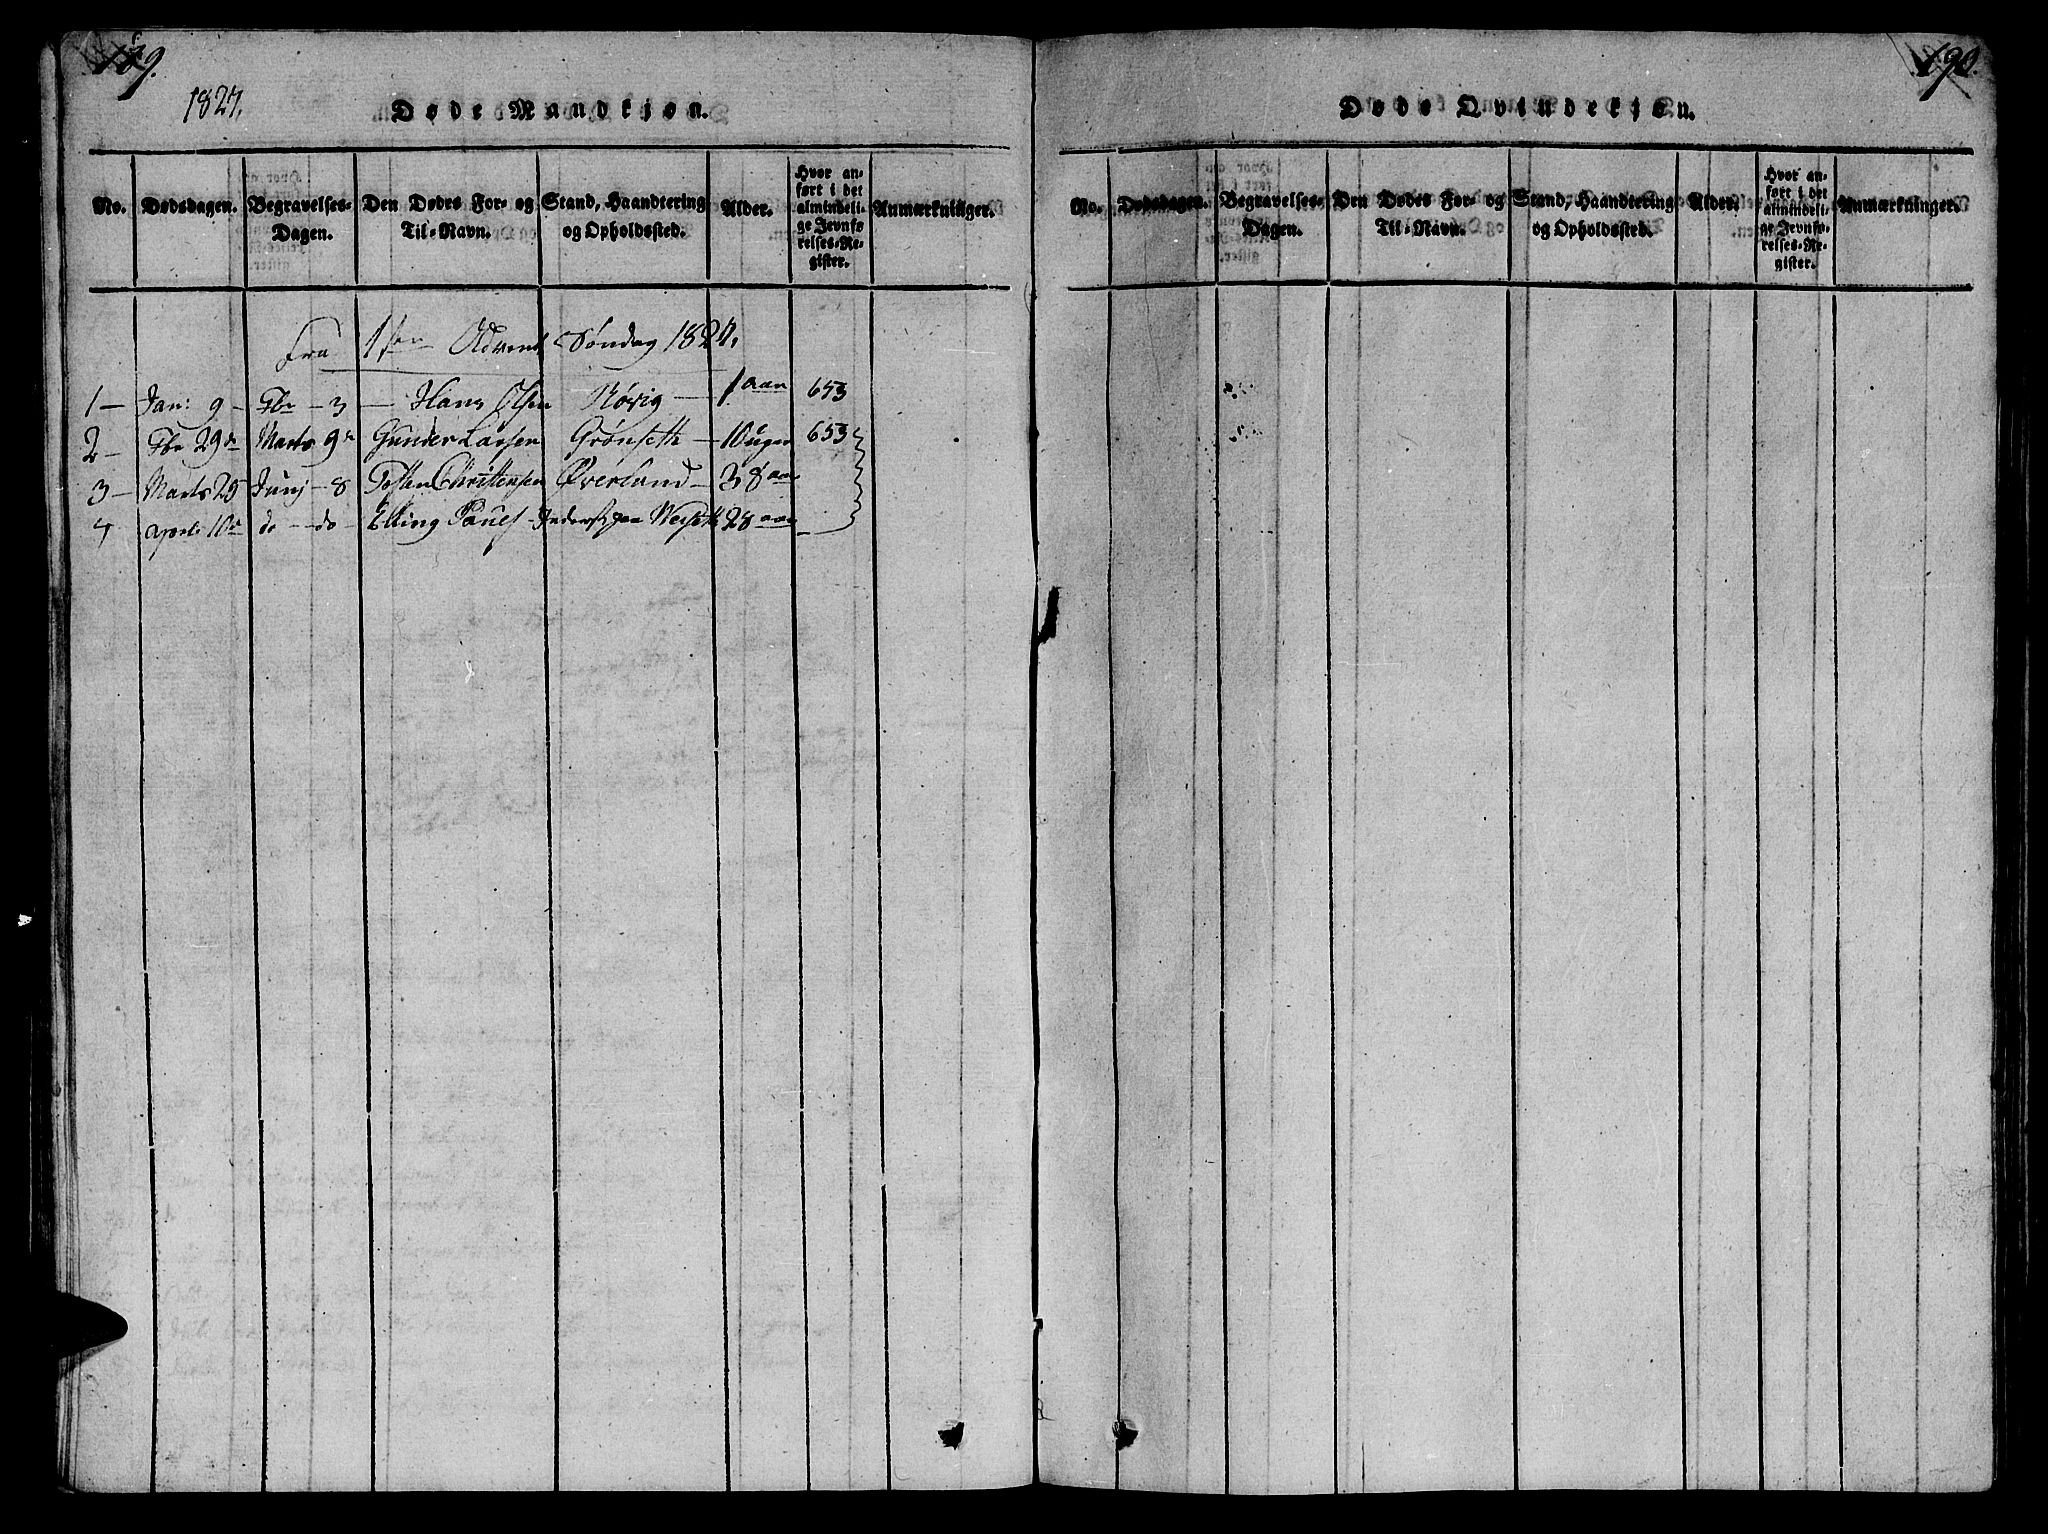 189.
1827.
Døde Mandkjøn.
No. Dødsdagen. Begravelses-Dagen. Den Dødes For- og Til-Navn. Stand, Haandtering og Opholdssted. Alder. Hvor anført i det almindelige Jevnførelses-Register. Anmærkninger.
Fra 1ste Advent Søndag 1827.
1 — Jan: 9 — Fbr — 3 — Hans Olsen Nøsvig — 1 aar 653
2 — Fbr 29de Marts 9de Gunder Larsen Grønseth — 10 uger 653
3 — Marts 25 Junj — 8 Tosten Christensen Øverland — 38 aar
4 April 10de do — do — Elling Pauels Inderst paa Werseth 28 aar —
190.
Døde Qvindekjøn.
No. Dødsdagen. Begravelses-Dagen. Den Dødes For- og Til-Navn. Stand, Haandtering og Opholdssted. Alder. Hvor anført i det almindelige Jevnførelses-Register. Anmærkninger.